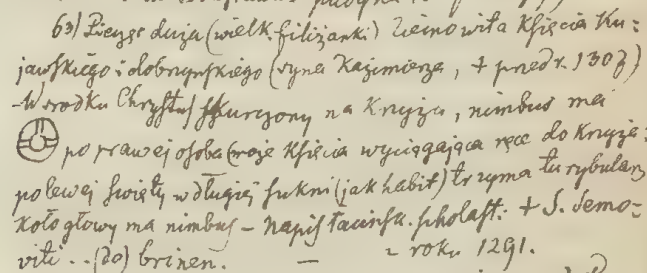 63) Pieczęć duża (wielk. filiżanki) Ziemowita Kſięcia Ku=
jawſkiego i dobrzynſkiego (syna Kazimierza, + przed r. 130)
- W srodku Chryſtuſ ſkurczony na Krzyżu, nimbus ma
po prawej oſoba (może Kſięcia wyciągająca ręce do Krzyża:
po lewej ſwięty w długiej ſukni (jak habit) trzyma turybularz
koło głowy ma nimbuſ - napiſ łacinſk. ſcholaſt: + S. Semo=
viti .. (do) brinen. — - roku 1291.